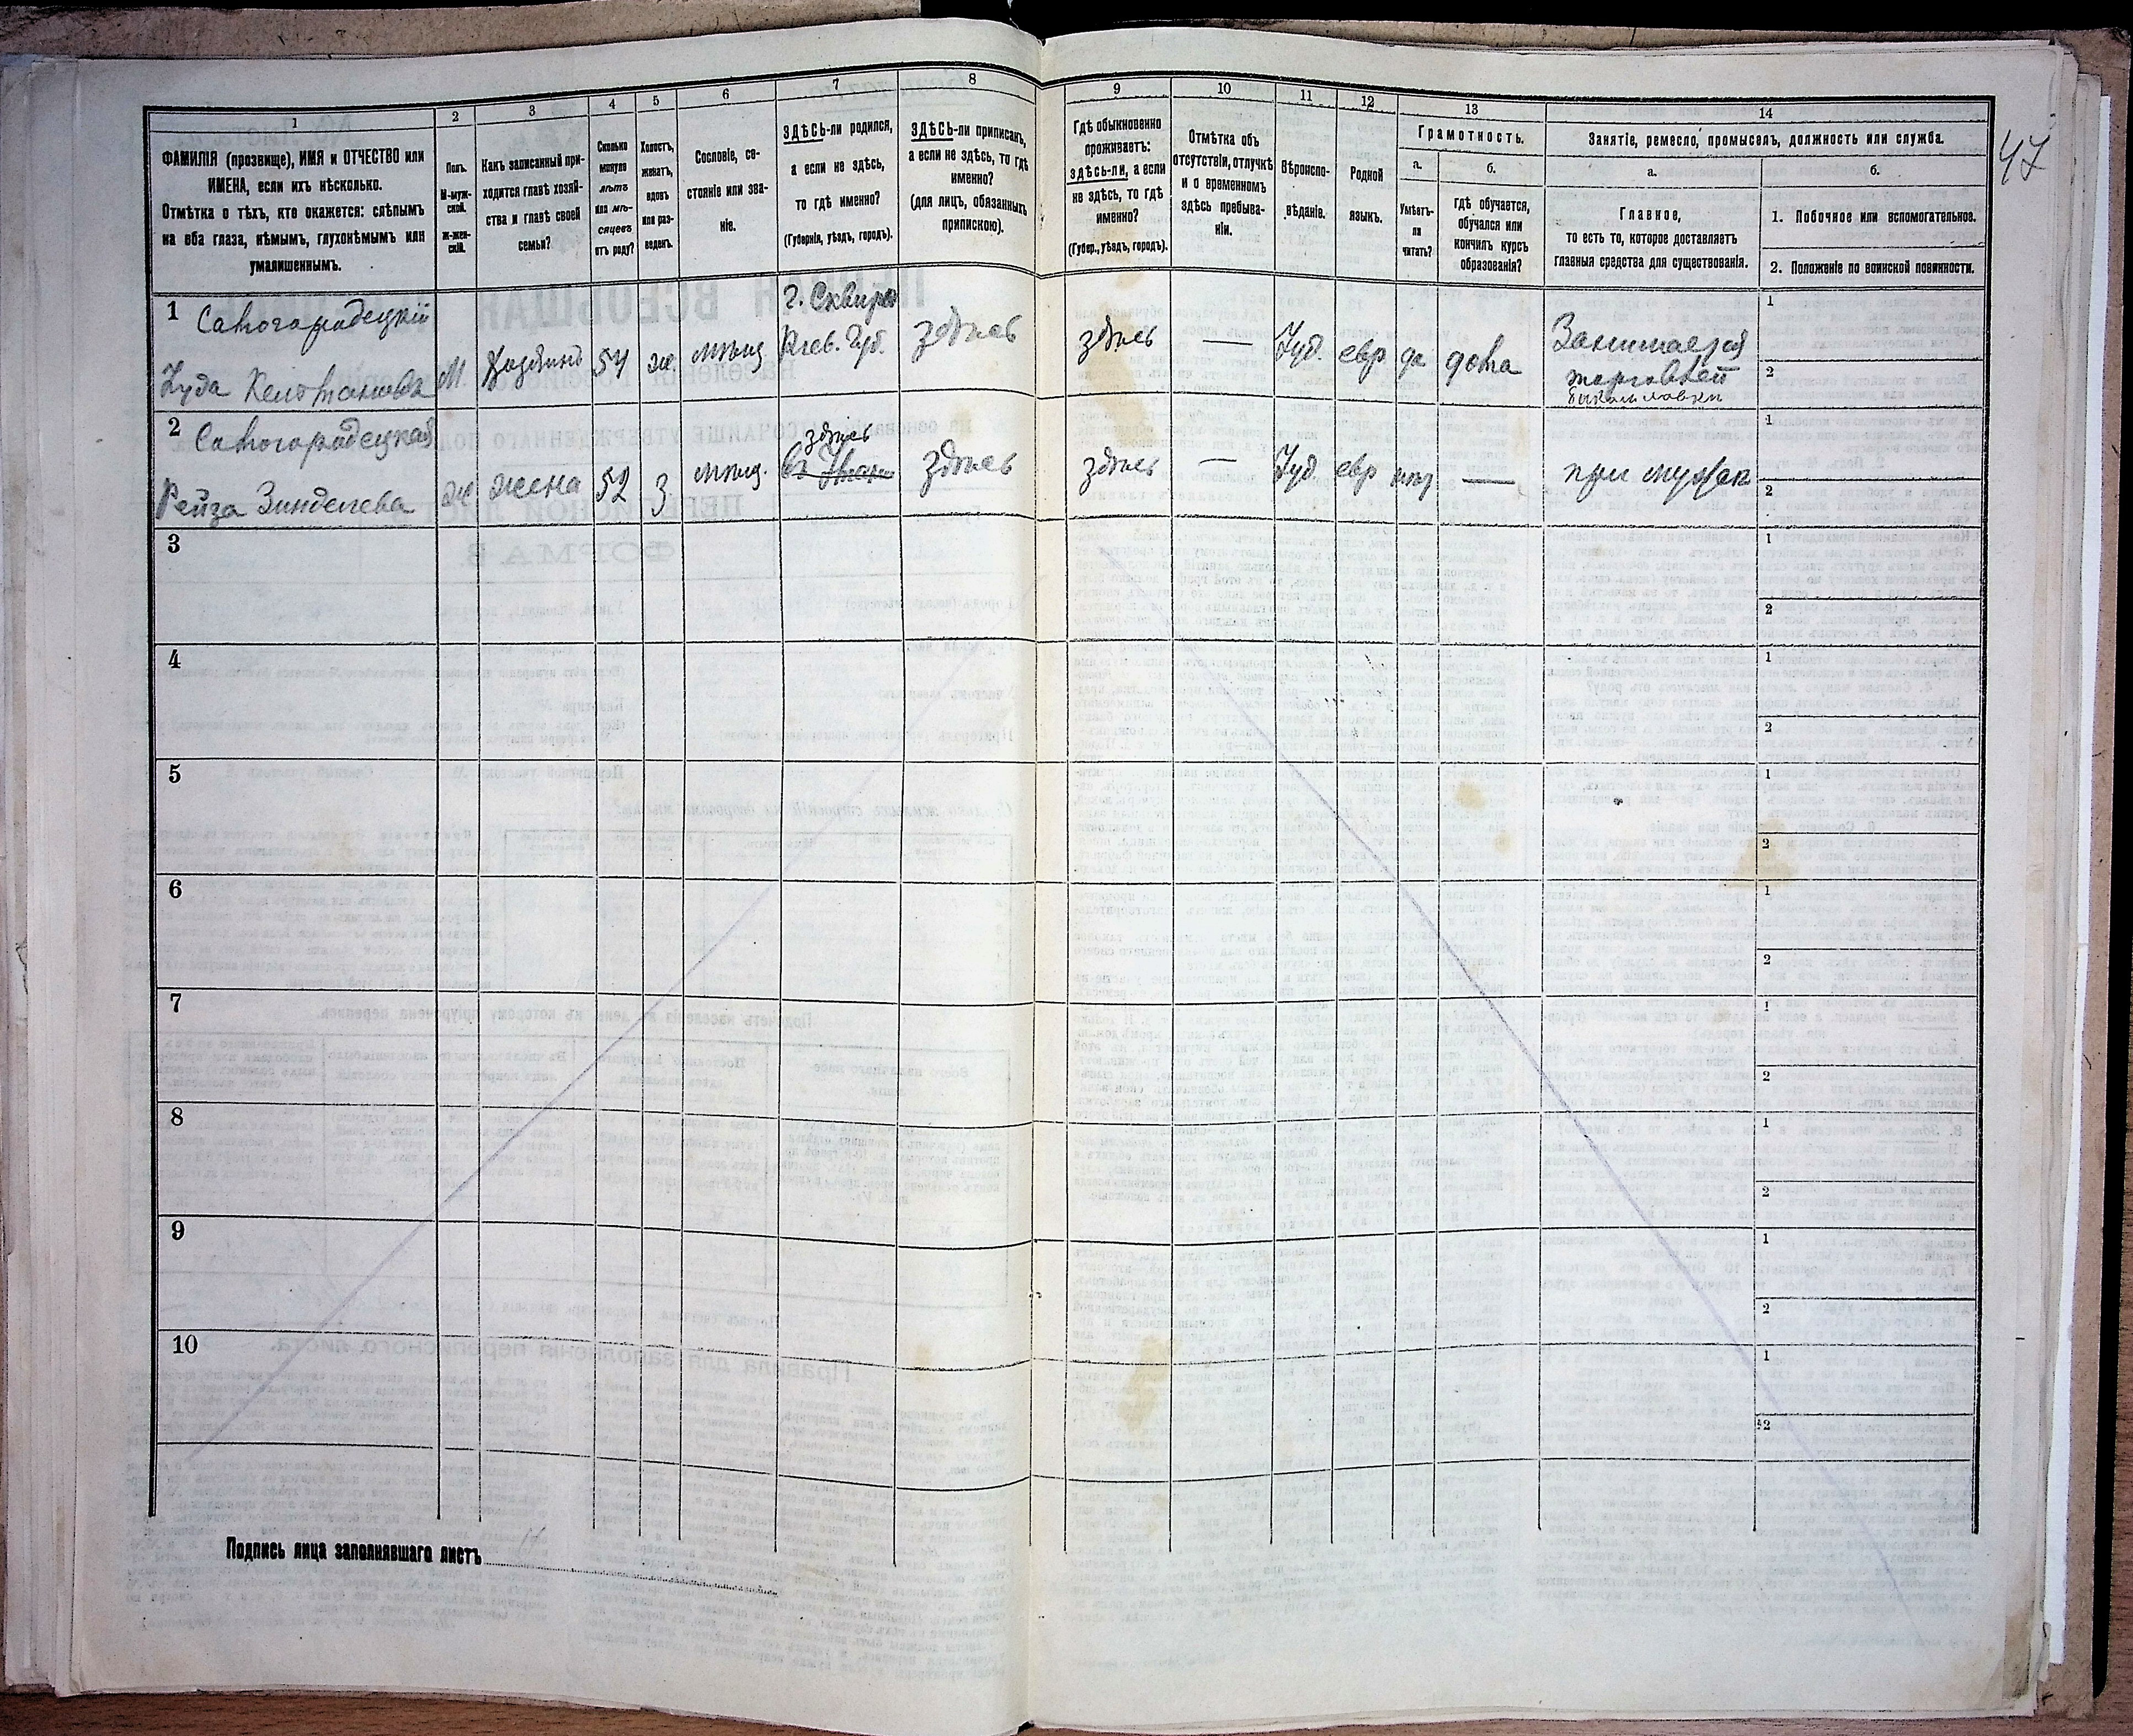 1
ФАМИЛІЯ (прозвище), ИМЯ и ОТЧЕСТВО или
ИМЕНА, если ихъ нѣсколько.
Отмѣтка о тѣхъ, кто окажется: слѣпымъ
на оба глаза, нѣмымъ, глухонѣмымъ или
умалишеннымъ.
2
Полъ.
М-муж-
ской.
Ж-жен-
скій.
3
Какъ записанный при-
ходится главѣ хозяй-
ства и главѣ своей
семьи?
4
Сколько
минуло
лѣтъ
или мѣ-
сяцевъ
отъ роду?
5
Холостъ,
женатъ,
вдовъ
или раз-
веденъ.
6
Сословіе, со-
стояніе или зва-
ніе.
7
ЗДѢСЬ-ли родился,
а если не здѣсь,
то гдѣ именно?
(Губернія, уѣздъ, городъ).
8
ЗДѢСЬ-ли приписанъ,
а если не здѣсь, то гдѣ
именно?
(для лицъ, обязанныхъ
припискою).
9
Гдѣ обыкновенно
проживаетъ:
здѣсь-ли, а если
не здѣсь, то гдѣ
именно?
(Губер., уѣздъ, городъ).
10
Отмѣтка объ
отсутствіи, отлучкѣ
и о временномъ
здѣсь пребыва-
ніи.
11
Вѣроиспо-
вѣданіе.
12
Родной
языкъ.
13
Грамотность.
а.
Умѣетъ-
ли
читать?
б.
гдѣ обучается,
обучался или
кончилъ курсъ
образованія?
14
Занятіе, ремесло, промыселъ, должность или служба.
а.
Главное,
то есть то, которое доставляетъ
главныя средства для существованія.
б.
1. Побочное или вспомогательное.
2. Положеніе по воинской повинности.
47
1
Самогородецкій
М
Хозяинъ
54
ж.
мѣщ
г. Сквира
Кіев. Губ.
здѣсь
здѣсь
—
Іуд.
евр
да
дома
Занимается
торговлей
1
2
2 Самогородецкая
Рейза
ж
жена
52
з
мѣщ.
здѣсь
здѣсь
здѣсь
—
Іуд
евр
нѣт
—
при мужѣ
1
2
3
1
2
4
1
2
5
1
2
6
1
2
7
1
2
8
1
2
9
1
2
10
1
2
Подпись лица заполнявшаго листъ